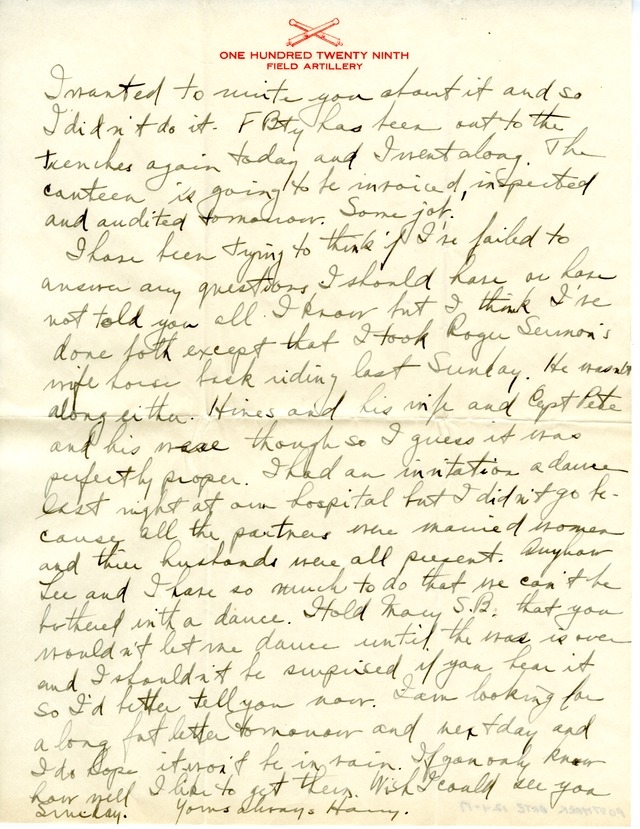 ONE HUNDRED TWENTY NINTH
FIELD ARTILLERY
I wanted to write you about it and so
I didn't do it. F Bty has been out to the
trenches again today and I went along. The
canteen is going to be invoiced, inspected
and audited tomorrow. Some job.
I have been trying to think if I've failed to
answer any questions I should have or have
not told you all I know but I think I've
done both except that I took Roger Sermon's
wife horse back riding last Sunday. He wasn't
along either. Hines and his wife and Capt Pete
and his were though so I guess it was
perfectly proper. I had an invitation a dance
last night at our hospital but I didn't go be-
cause all the partners were married women
and their husbands were all present. Anyhow
Lee and I have so much to do that we can't be
bothered with a dance. I told Mary S.B. that you
wouldn't let me dance until the war is over
and I shouldn't be surprised if you hear it
so I'd better tell you now. I am looking for
a long fat letter tomorrow and next day and
I do hope it won't be in vain. If you only knew
how well I like to get them. Wish I could see you
Sunday. Yours always Harry.
POSTMARK DATE 12-1-17